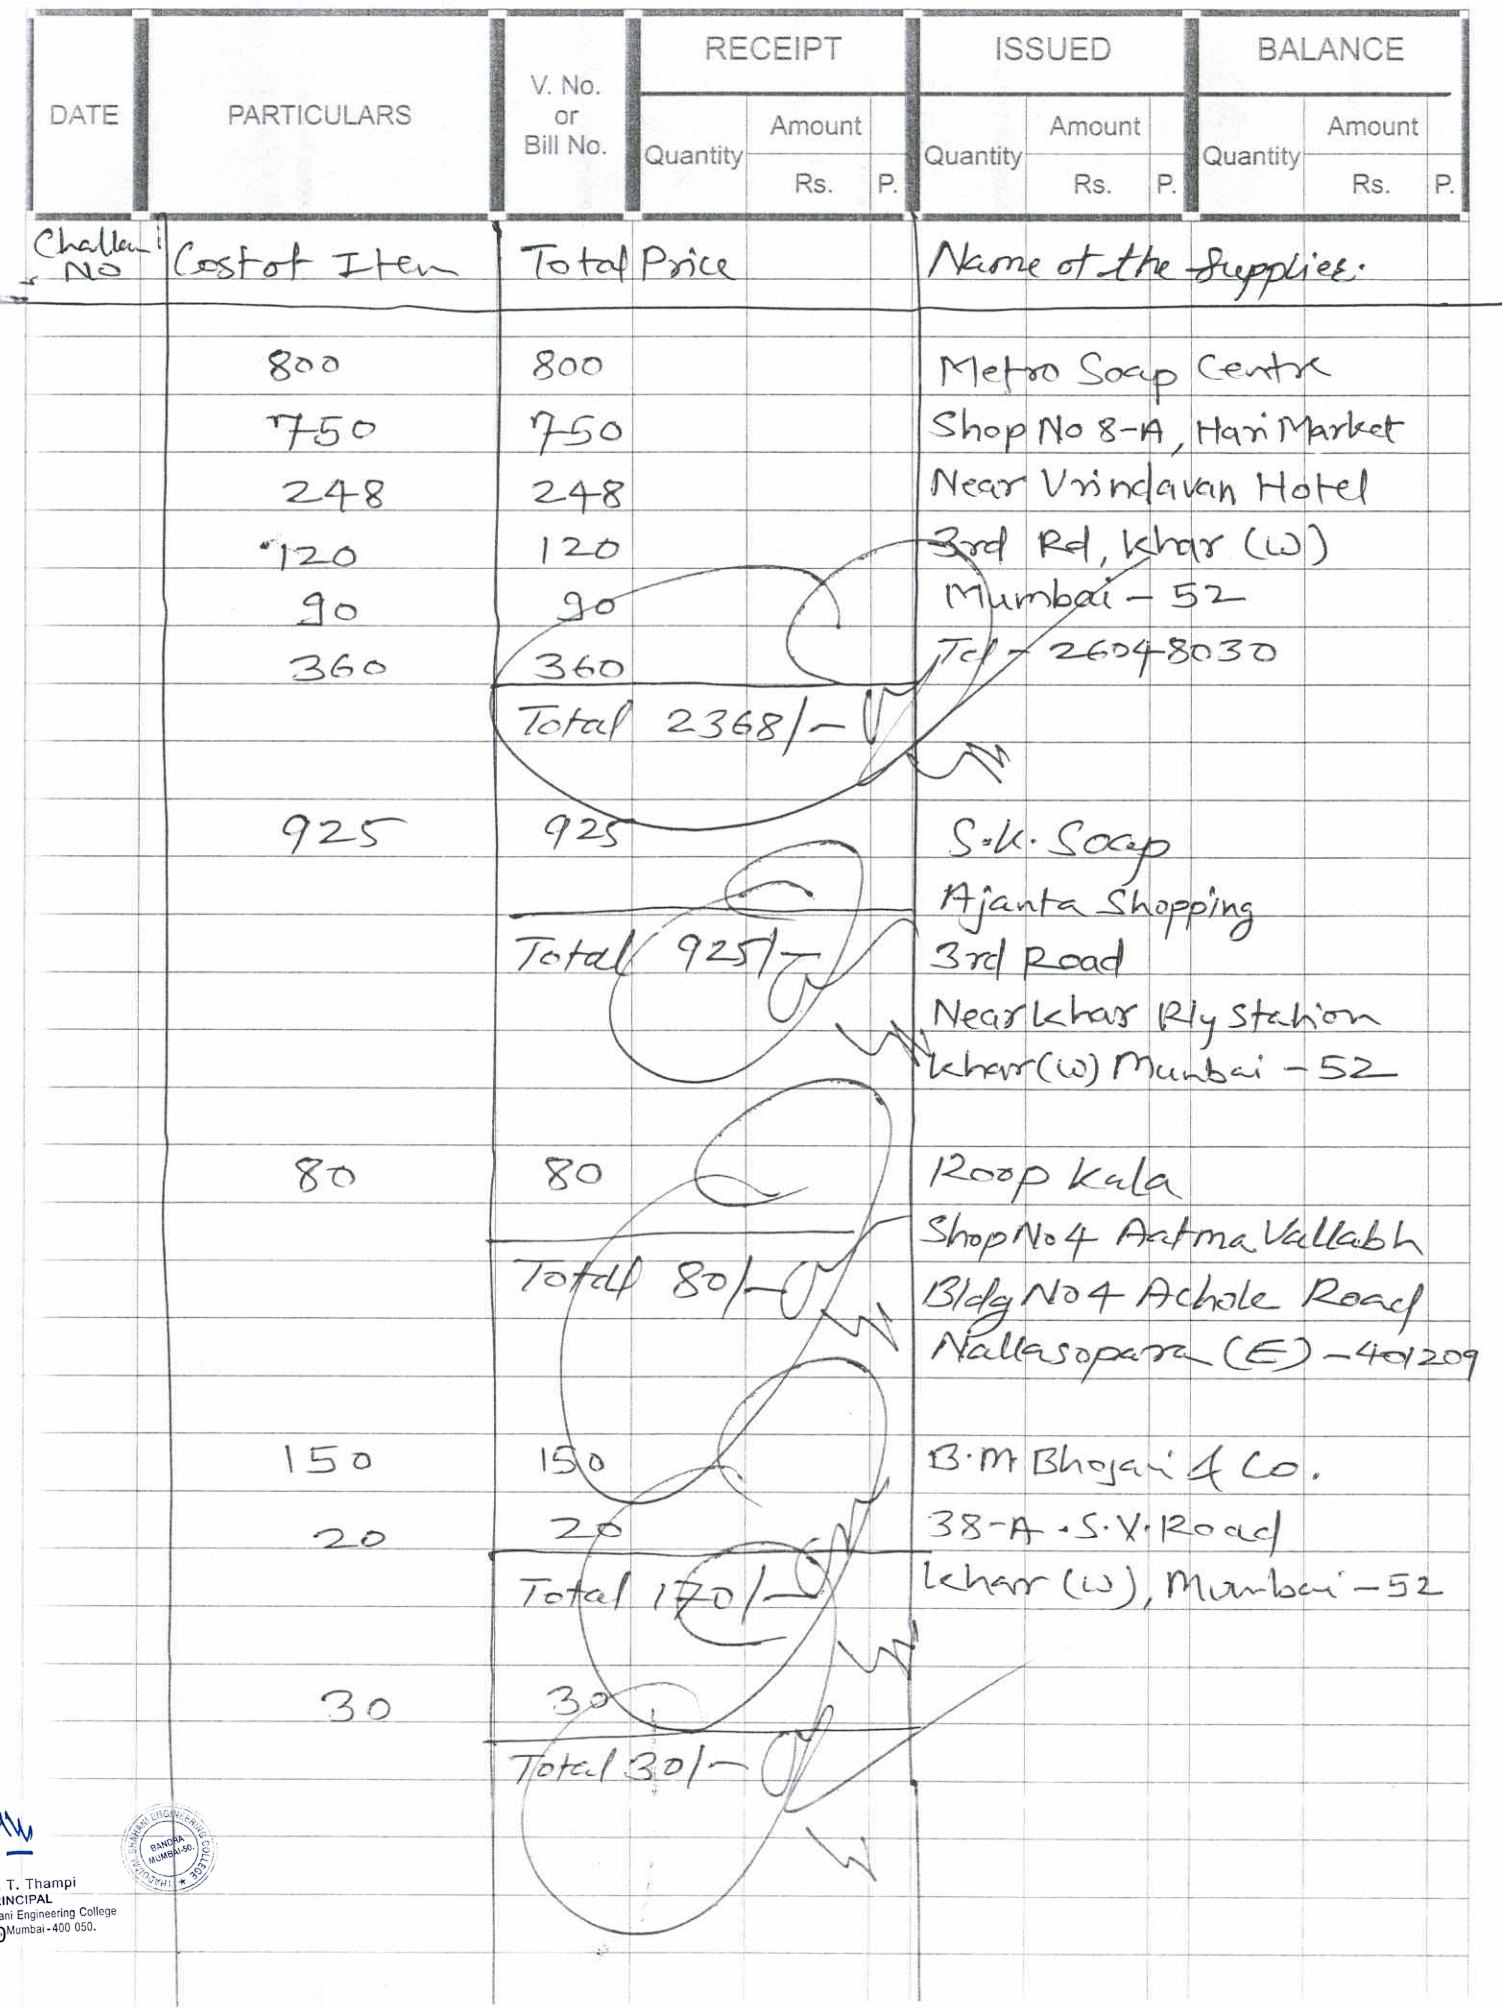 DATE PARTICULARS V. No. or Bill No. RECEIPT ISSUED BALANCE
Quantity Amount Rs. P. Quantity Amount Rs. P. Quantity Amount Rs. P.
Challan NO Cost of Item Total Price Name of the Supplier.
800 800 Metro Soap Centre
750 750 Shop No 8-A, Hari Market
248 248 Near Vrindavan Hotel
120 120 3rd Rd, Khar (W)
90 90 Mumbai - 52
360 360 Tel - 26048030
Total 2368/-
925 925 S.K. Soap
Ajanta Shopping
Total 925/- 3rd Road
Near Khar Rly Station
Khar (W) Mumbai - 52
80 80 Roop Kala
Shop No 4 Aatma Vallabh
Total 80/- Bldg No 4 Achole Road
Nallasopara (E) - 401209
150 150 B.M. Bhojani & Co.
20 20 38-A. S.V. Road
Total 170/- Khar (W), Mumbai - 52
30 30
Total 30/-
T. Thampi
INCIPAL
ani Engineering College
Mumbai - 400 050.
THADOMAL SHAHANI ENGINEERING COLLEGE
BANDRA
MUMBAI-50.